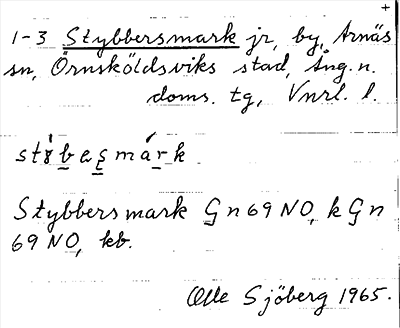 +
1-3 Stybbersmark jr, by, Arnäs
sn, Örnsköldsviks stad, Ång. n.
doms. tg, Vnrl. l.
Stybbersmark Gn 69 NO, k Gn
69 NO, kb.
Olle Sjöberg 1965.